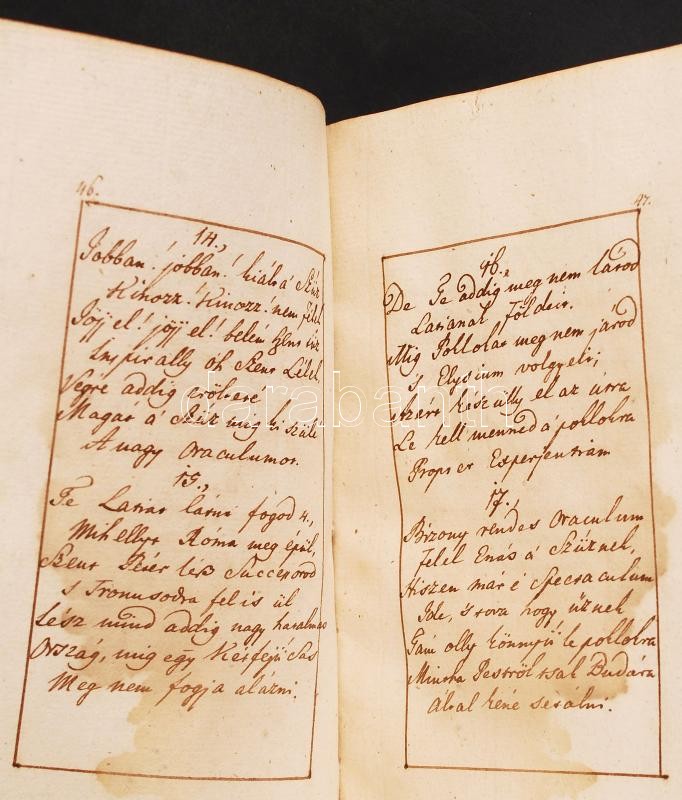 46.
14.,
Jobban! jobban! kiálta Szűz
Kinozz! Kinozz! nem félel
Jöjj el! jöjj el! belém Szent
Inspirally óh Szent Lélek
Végre addig erölteté
Magát á Szűz mig ki szülte
A nagy Oraculumot.
15.,
Te Latiát látni fogod
Mihellyt Róma meg épül,
Szent Péter lész Successorod
S Tronusodra fel is ül
Lész mind addig nagy hatalmas
Ország, mig egy Kétfejü Sas
Meg nem fogja alázni.
47.
16.,
De Te addig meg nem látod
Latianak Földeit.
Mig Poklokat meg nem járod
's Elysium völgyeit;
Azért készülly el az útra
Le kell menned á poklokra
Propter Experjentiam
17.,
Bizony rendes Oraculum
Felel Eneás á Szűznek,
Hiszen már é Spectaculum
Ide, 's tova hogy űznek
Tám olly könnyű le poklokra
Mintha Pestről tsak Budára
Által kéne sétálni.
darabanth